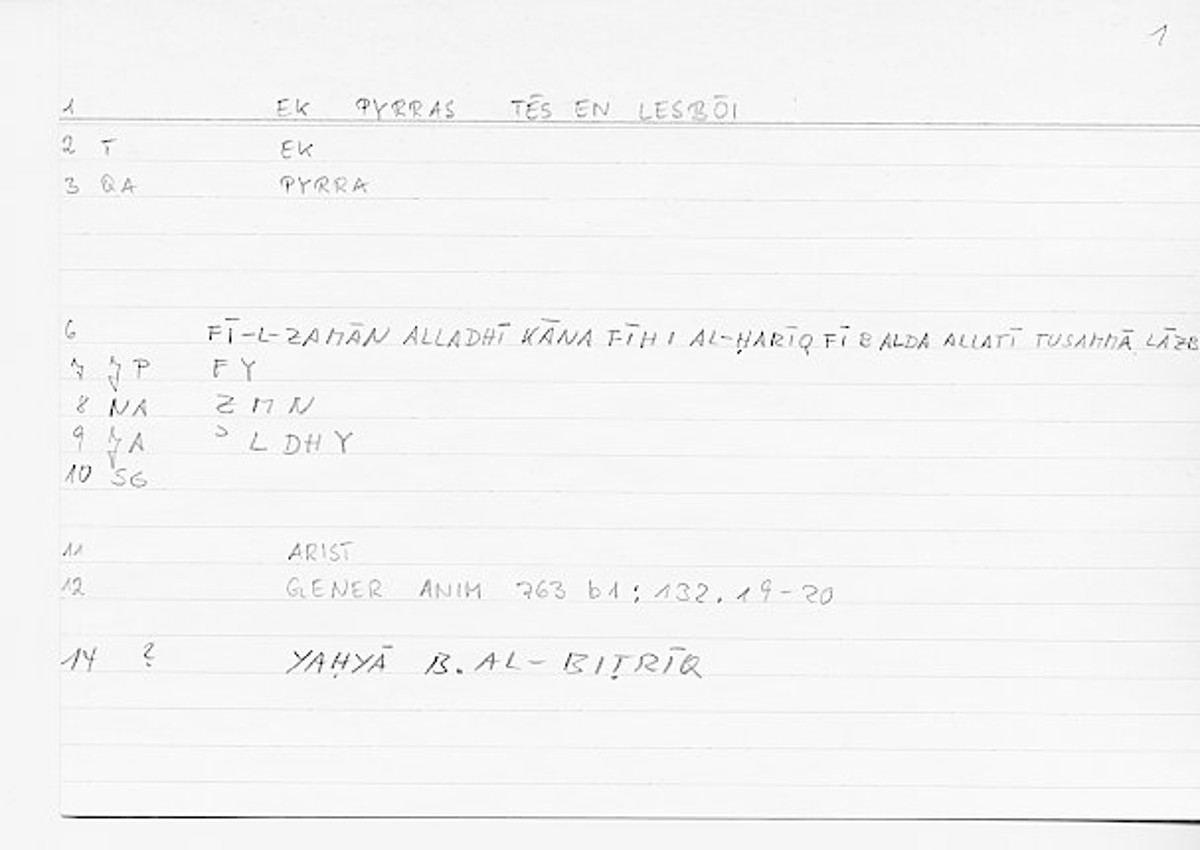 1
1 EK PYRRAS TĒS EN LESBŌI
2 T EK
3 QA PYRRA
6 FĪ-L-ZAMĀN ALLADHĪ KĀNA FĪHI AL-ḤARĪQ FĪ BALDA ALLATĪ TUSAMMĀ LĀZB
7 P FY
8 NA ZMN
9 A ʾLDHY
10 SG
11 ARIST
12 GENER ANIM 763 b1 : 132.19-20
14 ? YAḤYĀ B. AL-BIṬRĪQ